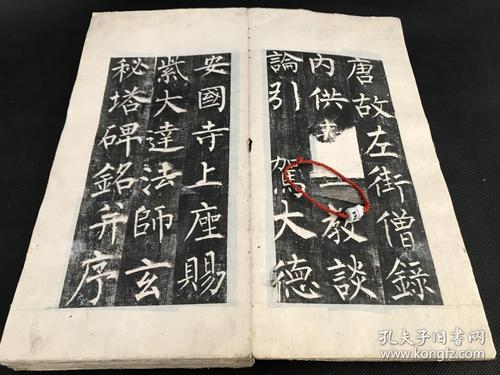 唐故左街僧錄
内供 教談
論引 駕大德
安國寺上座賜
紫大達法師玄
秘塔碑銘并序
孔夫子旧书网
www.kongfz.com